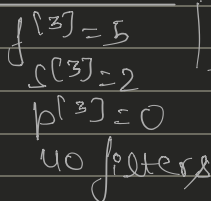 f^[3] = 5
s^[3] = 2
p^[3] = 0
40 filters